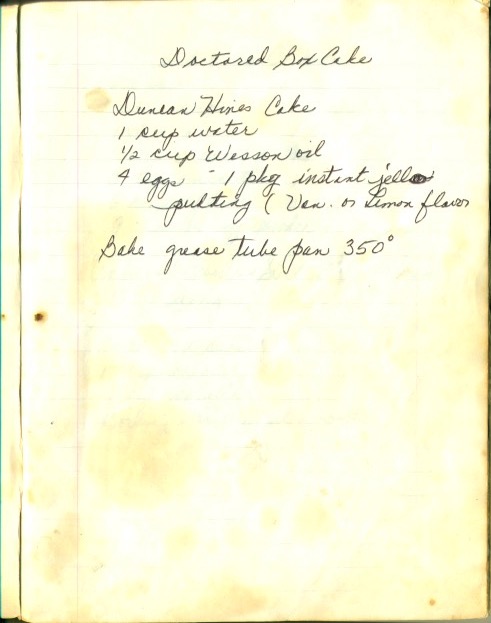 Doctored Box Cake
Duncan Hines Cake
1 cup water
1/2 cup Wesson oil
4 eggs - 1 pkg instant jello
pudding ( Van. or Limon flavor
Bake grease tube pan 350°